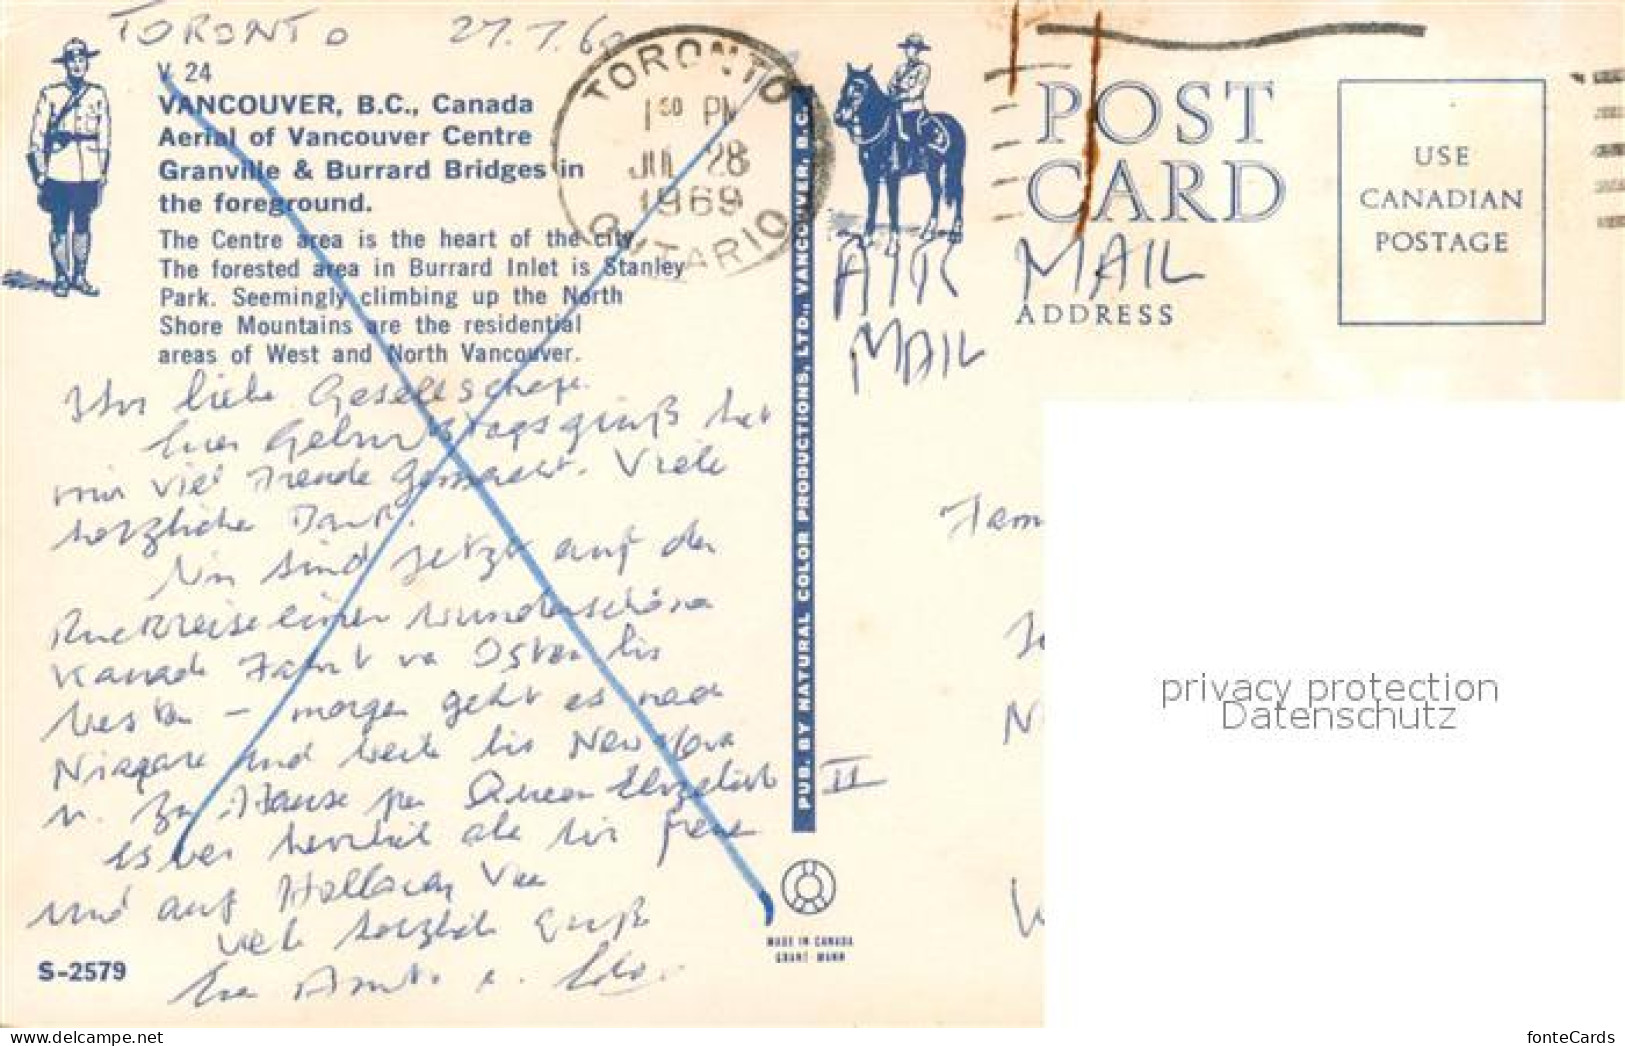 TORONTO 27.7.6
V. 24
VANCOUVER, B.C., Canada
Aerial of Vancouver Centre
Granville & Burrard Bridges in
the foreground.
The Centre area is the heart of the city.
The forested area in Burrard Inlet is Stanley
Park. Seemingly climbing up the North
Shore Mountains are the residential
areas of West and North Vancouver.
TORONTO
1 00 PM
JUL 28
1969
ONTARIO
Ihr liebe
Euer Geburtstagsgruß hat
mir viel Freude gemacht. Viele
herzliche Dank.
Wir sind jetzt auf der
Rückreise einer wunderschönen
Kanada Fahrt von Osten bis
Westen – morgen geht es nach
Niagara und weiter bis New York
u. zu Hause per Queen Elizabeth II
Es war herrlich alle wir
und auf
Viele herzliche Grüße
PUB. BY NATURAL COLOR PRODUCTIONS, LTD., VANCOUVER, B.C.
MADE IN CANADA
GRANT-MANN
S-2579
POST
CARD
AIR MAIL
MAIL
ADDRESS
USE
CANADIAN
POSTAGE
Fam
privacy protection
Datenschutz
fonteCards